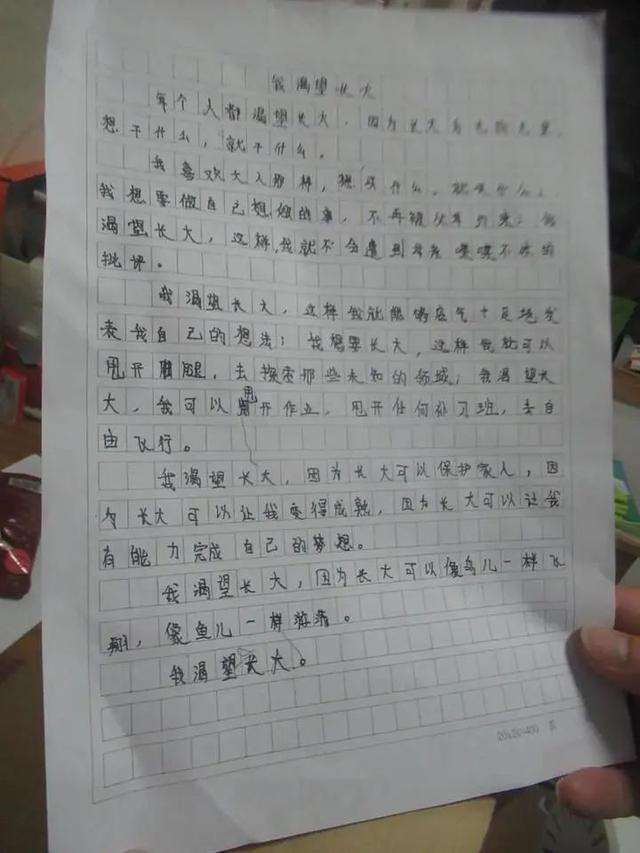 我渴望长大
每个人都渴望长大,因为长大
想干什么,就干什么。
我喜欢大人那样,想做什么,就做什么。
我想要做自己想做的事,不再被
渴望长大,这样,我就不会遭到 喋喋不休的
批评。
我渴望长大,这样我就能够底气十足地发
表我自己的想法;我想要长大,这样我就可以
甩开 腿,去探索那些未知的领域;我渴望长
大,我可以甩开作业,甩开任何补习班,去自
由飞行。
我渴望长大,因为长大可以保护家人,因
为长大可以让我变得成熟,因为长大可以让我
有能力完成自己的梦想。
我渴望长大,因为长大可以像鸟儿一样飞
翔,像鱼儿一样游荡。
我渴望长大。
20x20=400 页